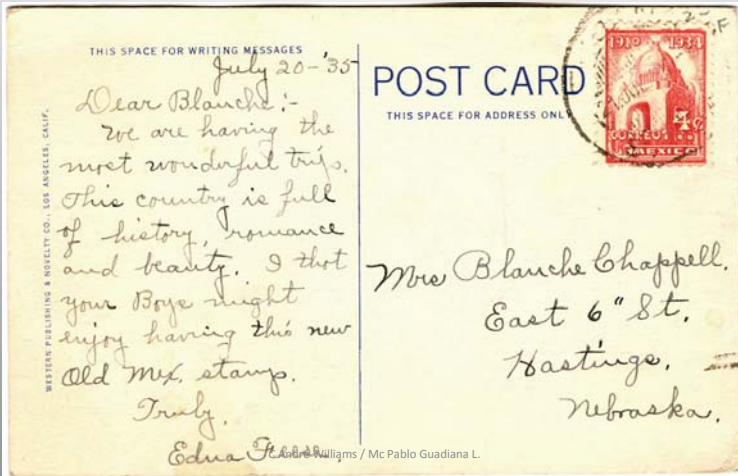 THIS SPACE FOR WRITING MESSAGES
July 20-'35
Dear Blanche:-
We are having the
most wonderful trip.
This country is full
of history, romance
and beauty. I thot
your Boys might
enjoy having this new
Old Mex. stamp.
Truly,
Edna
WESTERN PUBLISHING & NOVELTY CO., LOS ANGELES, CALIF.
POST CARD
THIS SPACE FOR ADDRESS ONLY
1910 1934
4c
CORREOS
MEXICO
Mrs Blanche Chappell.
East 6" St.
Hastings,
Nebraska.
Williams / Mc Pablo Guadiana L.